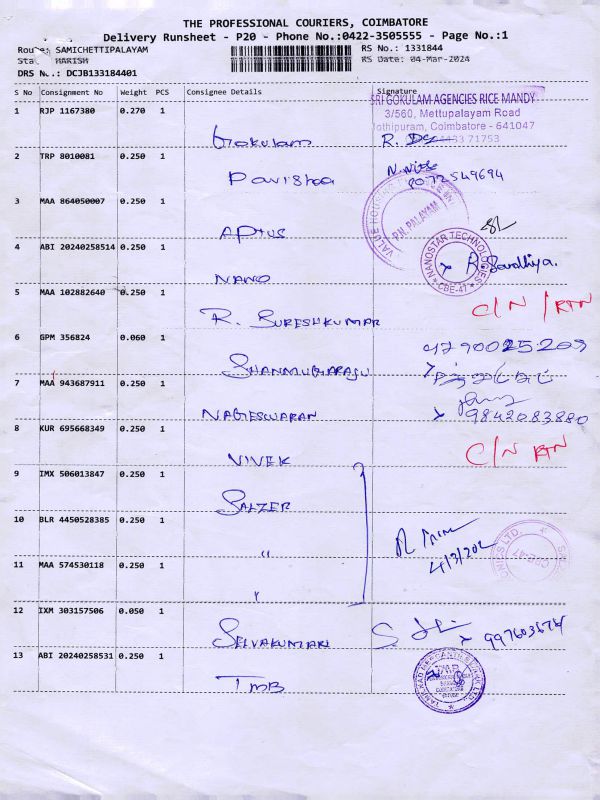 THE PROFESSIONAL COURIERS, COIMBATORE
Delivery Runsheet - P20 - Phone No.:0422-3505555 - Page No.:1
Route: SAMICHETTIPALAYAM RS No.: 1331844
HARISH RS Date: 04-Mar-2024
DRS No.: DCJB133184401
S No Consignment No Weight PCS Consignee Details Signature
SRI GOKULAM AGENCIES RICE MANDY
1 RJP 1167380 0.270 1
3/560, Mettupalayam Road
Jothipuram, Coimbatore - 641047
Gokulam R. 71753
2 TRP 8010081 0.250 1
Pavishaa
3 MAA 864050007 0.250 1
P.N. PALAYAM
APTUS
4 ABI 20240258514 0.250 1
NANOSTAR TECHNOLOGIES
CBE-47
NANO
5 MAA 102882640 0.250 1
R. SURESHKUMAR C/N / RTN
6 GPM 356824 0.060 1
SHANMUGARAJU
7 MAA 943687911 0.250 1
NAGESWARAN 9842083880
8 KUR 695668349 0.250 1
VIVEK C/N RTN
9 IMX 506013847 0.250 1
SALZER
10 BLR 4450528385 0.250 1
"
4/3/202
11 MAA 574530118 0.250 1
"
12 IXM 303157506 0.050 1
SELVAKUMARI
13 ABI 20240258531 0.250 1
TMB
TMB